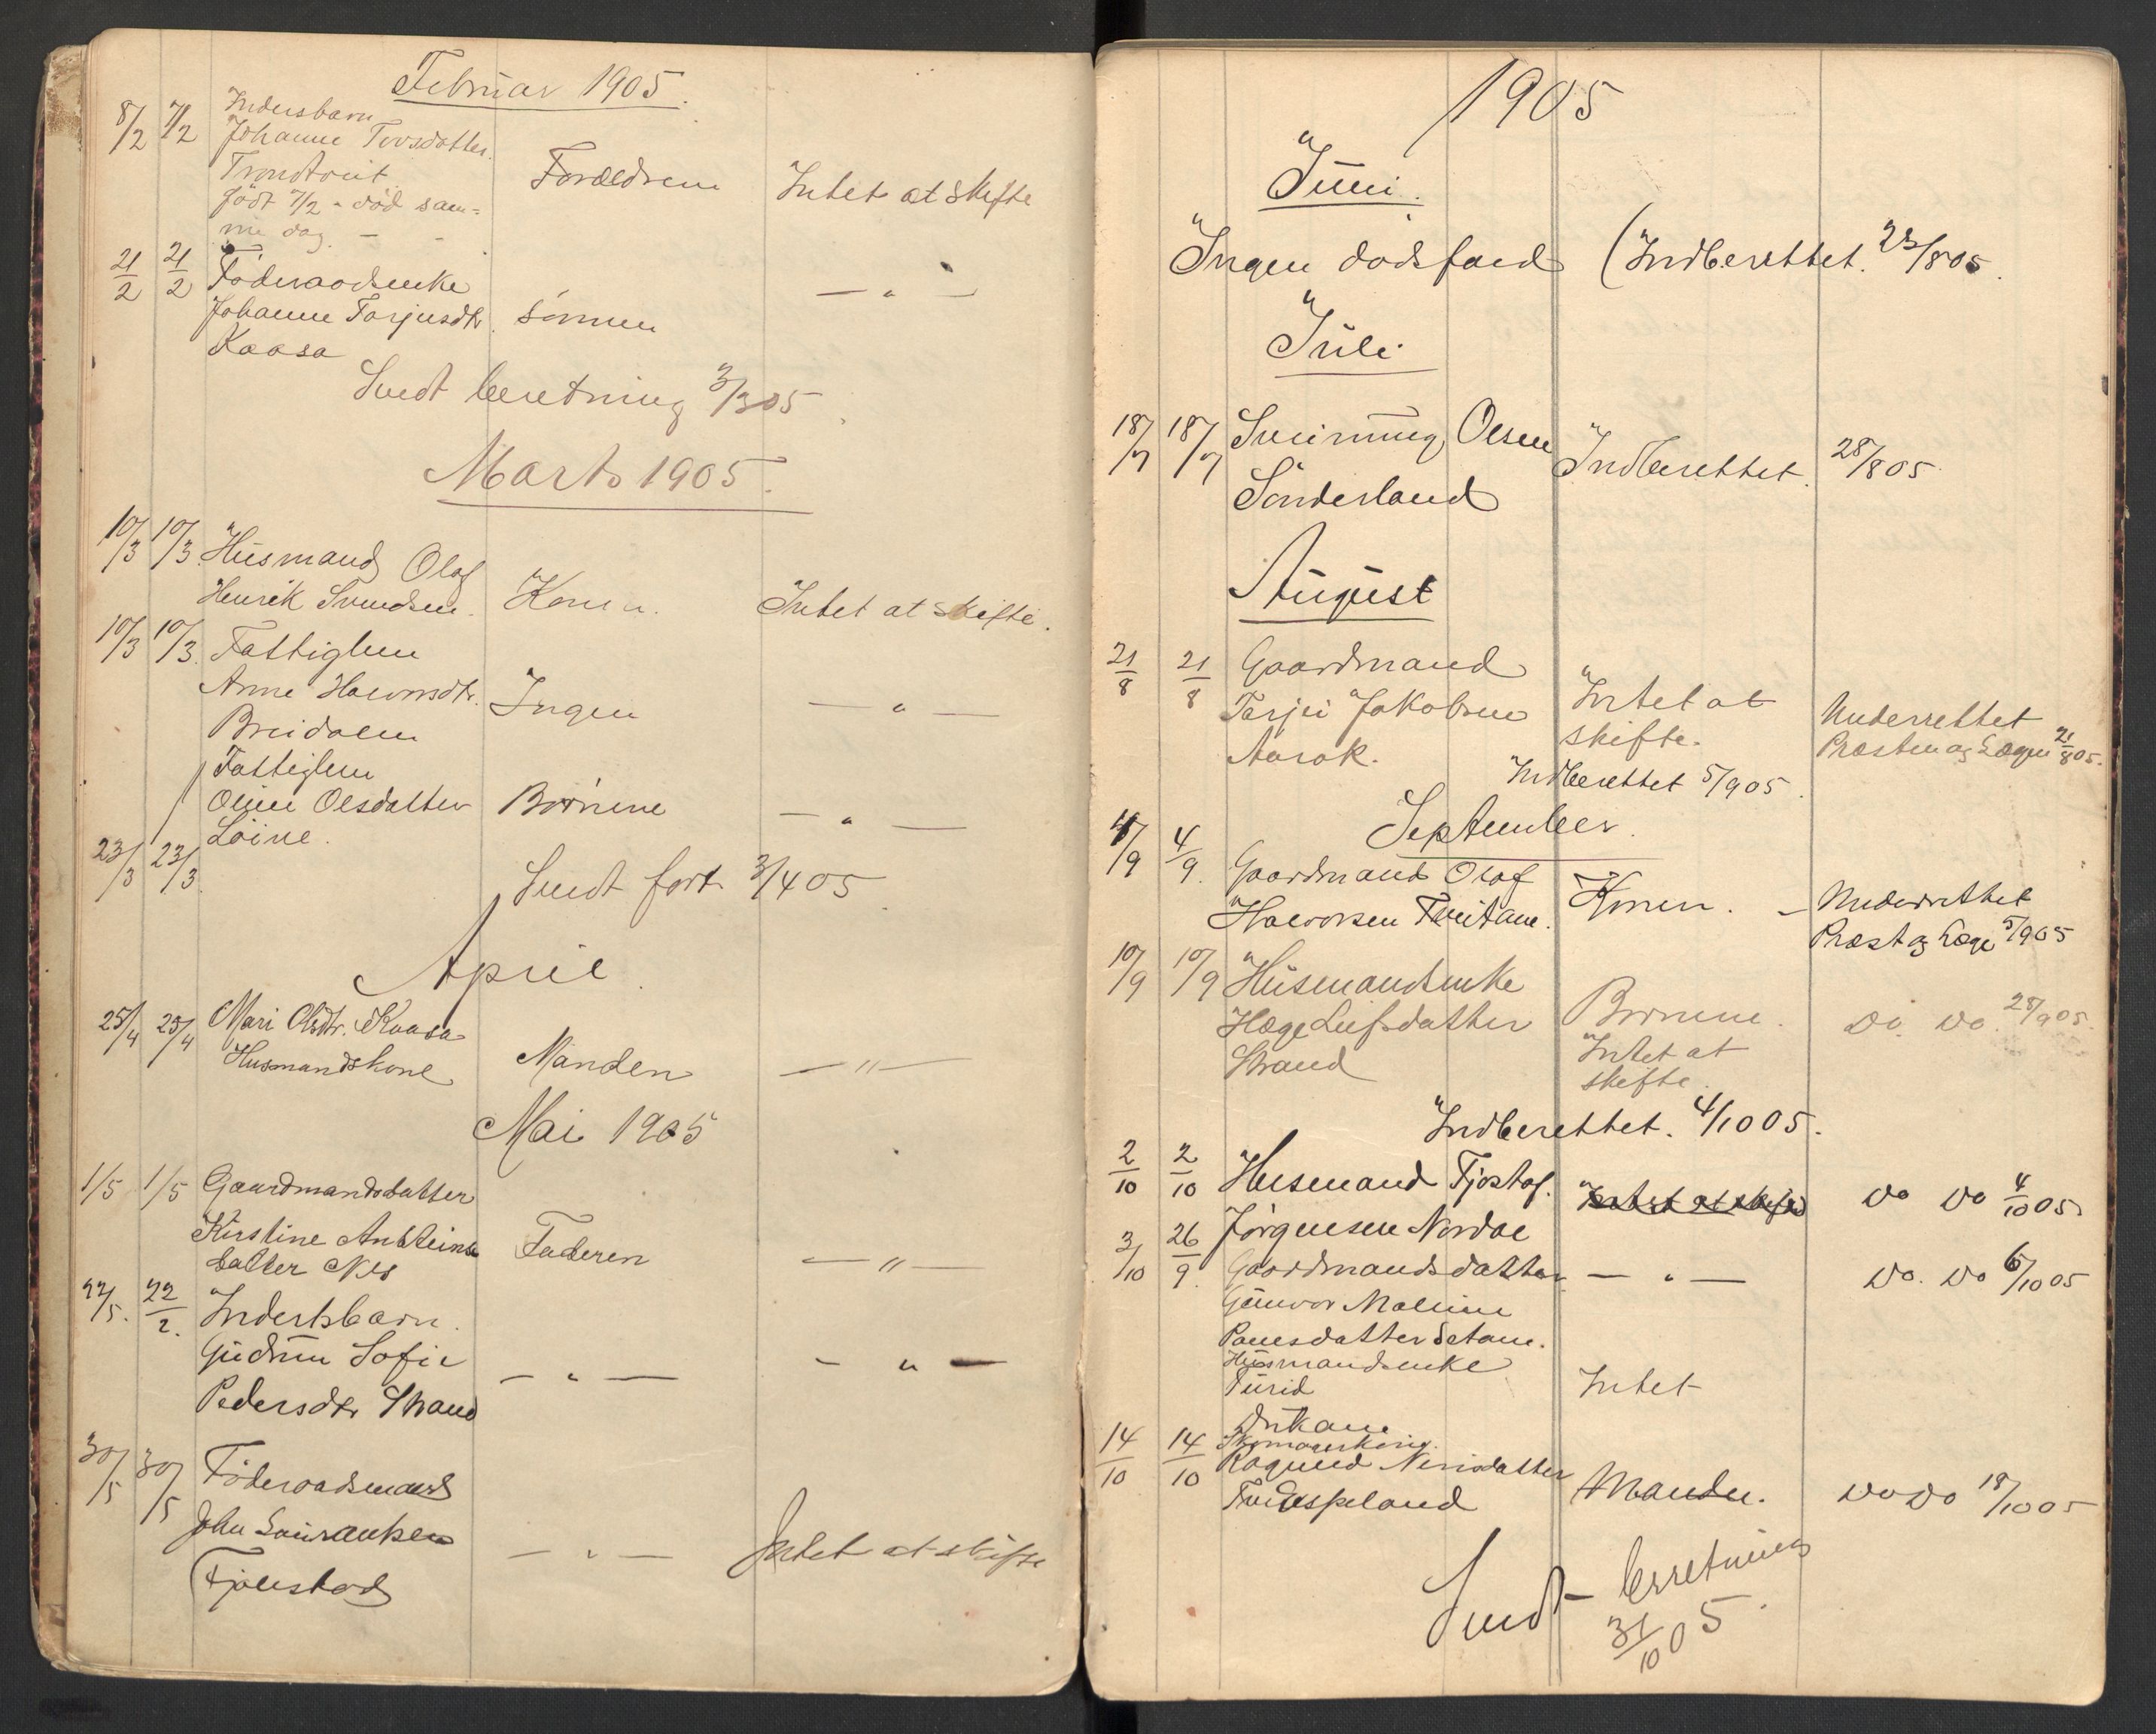 Februar 1905.
8/2 7/2 Inderstbarn
Johanne Torsdatter.
Trondtveit Forældrene Intet at skifte
født 7/2 - død sam=
me dag. - -
21/2 21/2 Föderaadsenke — " —
Johanne Tarjusdtr. Sönnen
Kaasa
Sendt beretning 3/3 05
Marts 1905.
10/3 10/3. Husmand Olaf
Henrik Svendsen. Konen. Intet at skifte.
10/3 10/3. Fattiglem
Anne Halvorsdtr. Ingen — " —
Breidalen
Fattiglem
Oline Olsdatter Børnene — " —
Löine.
23/3 23/3.
Sendt fort. 3/4 05
April.
25/4 25/4 Mari Olsdtr. Kaasa
Husmandskone Manden — " —
Mai 1905
1/5 1/5 Gaardmandsdatter
Kirstine Anbteins
datter Nes Faderen — " —
22/5. 22/2. Inderstbarn.
Gudrun Sofie — " — - " —
Pedersdtr Strand
30/5 30/5 Föderaadsmand
John Lauransen — " — Intet at skifte
Fjölestad
1905
Juni.
Ingen dødsfald (Indberettet. 28/8 05.
Juli
18/7 18/7 Sveinung Olsen Indberettet. 28/8 05
Sönderland
August
21/8 21/8 Gaardmand
Tarjei Jakobsen Intet at Underrettet
Aarak. skifte. Præsten og Lægen 21/8 05.
Indberettet 5/9 05.
September.
4/9 4/9. Gaardmand Olaf
Halvorsen Tveitane. Konen. — Underrettet
Præst og Læge 5/9 05
10/9 10/9 Husmandsenke
Hæge Leifsdatter Børnene. do do. 28/9 05.
Strand Intet at
skifte.
Indberettet. 4/10 05.
2/10 2/10 Husmand Fjostof. Intet at skifte do do 4/10 05.
Jörgensen Nordal
3/10 26/9. Gaardmandsdatter — " — do. do 6/10 05
Gunvor Maline
Paulsdatter
Husmandsenke
Turid Intet
14/10 14/10 Ragnild Nerisdatter
Espeland Manden. do do 18/10 05
Sendt beretning
31/10 05.